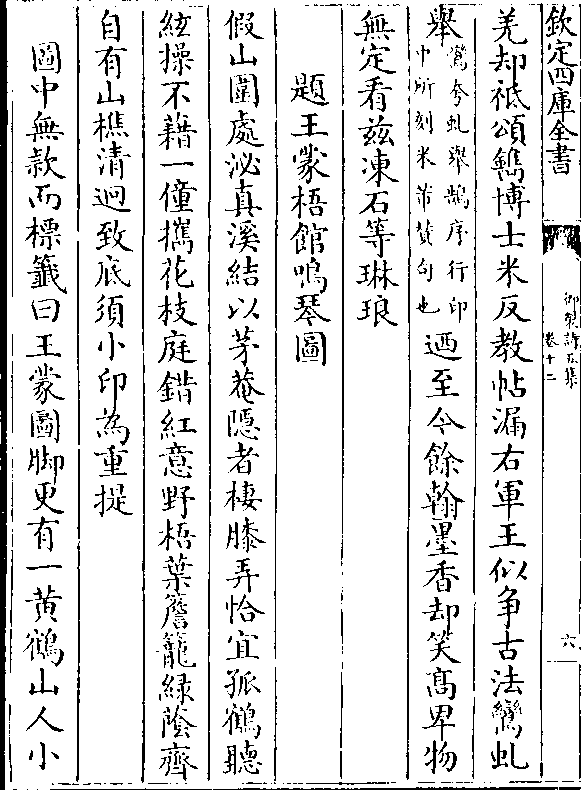 欽定四庫全書
御製詩五集
卷十二
六
羌却祗頌鷦博士米反教帖漏右軍王似争古法鸞虬
舉鸞夸虬舉鵠序行印
中所刻米芾賛句也迺至今餘翰墨香却笑髙卑物
無定看兹凍石等琳琅
題王蒙梧館鳴琴圖
假山圍處泌真溪結以茅菴隠者棲膝弄恰宜孤鶴聽
絃操不藉一僮攜花枝庭錯紅意野梧葉簷籠緑蔭齊
自有山樵清迥致底須小印為重提
圖中無款而標籤曰王蒙圖脚更有一黄鶴山人小